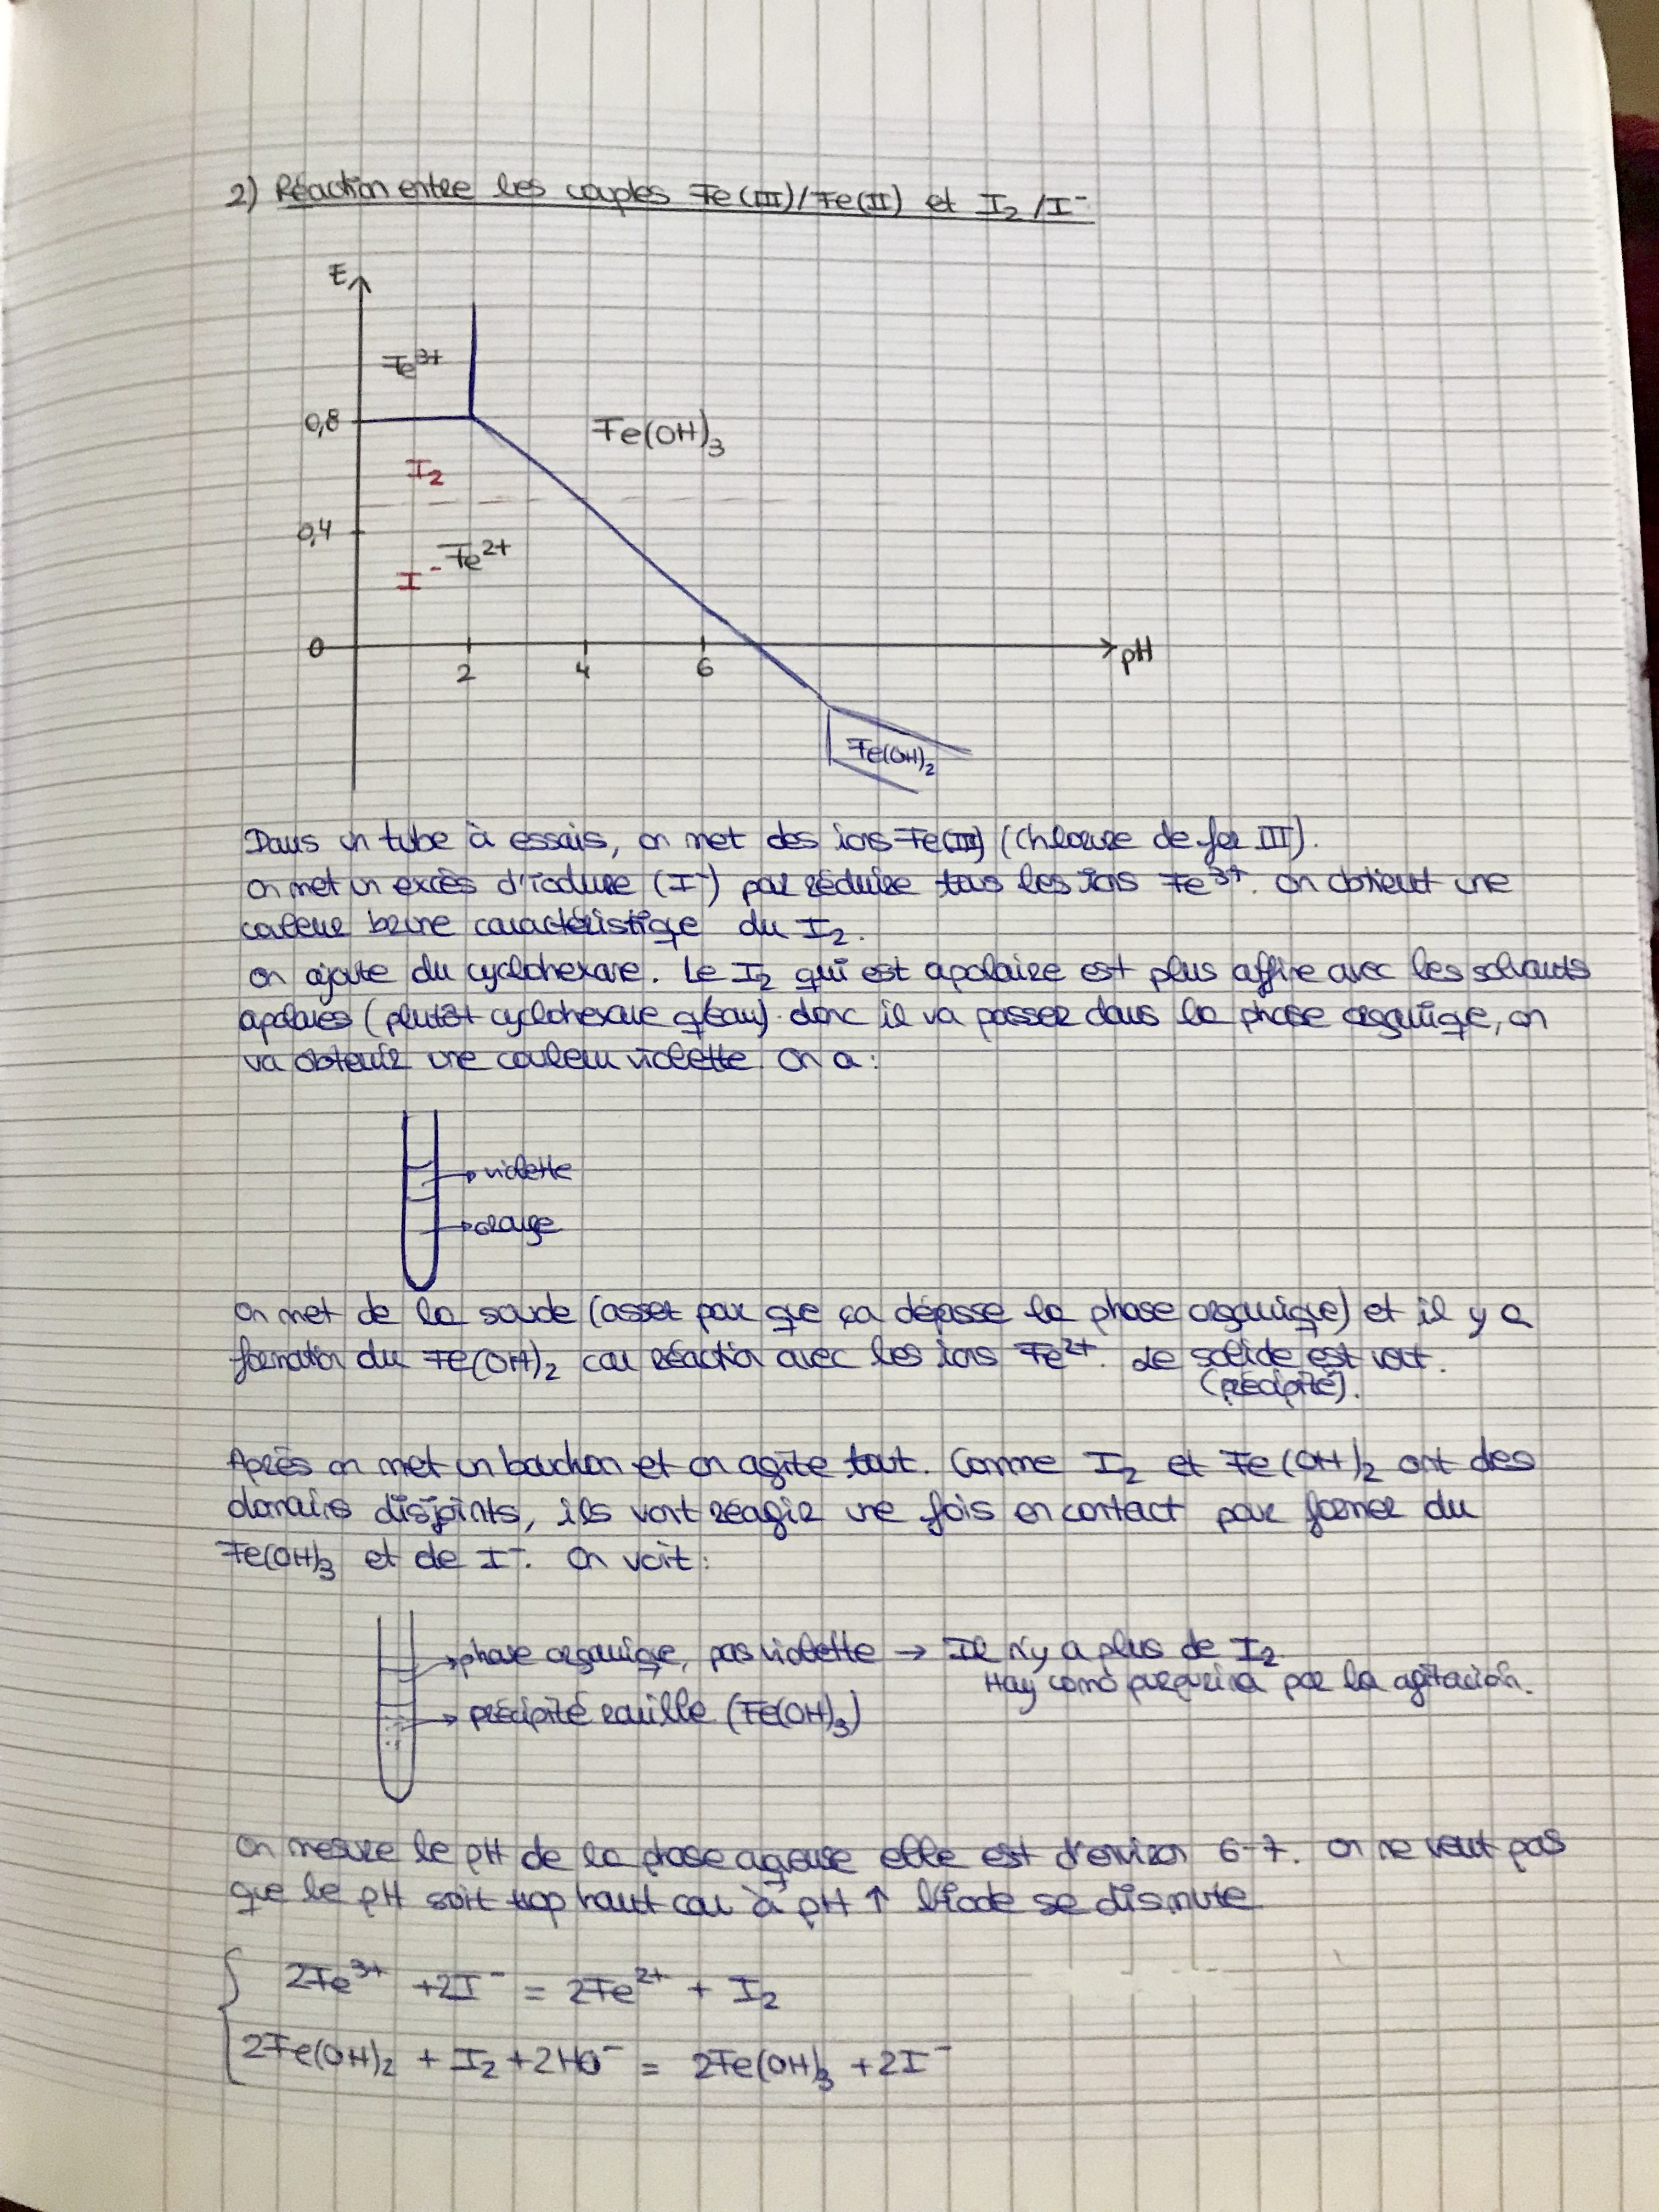 2) Réaction entre les couples Fe(III)/Fe(II) et I₂/I⁻
E
Fe³⁺
0,8
Fe(OH)₃
I₂
0,4
Fe²⁺
I⁻
0
2
4
6
pH
Fe(OH)₂
Dans un tube à essais, on met des ions Fe(III) (Chlorure de fer III).
on met un excès d'iodure (I⁻) par réduire tous les ions Fe³⁺. on obtient une
couleur brune caractéristique du I₂.
on ajoute du cyclohexane. Le I₂ qui est apolaire est plus affine avec les solvants
apolaires (plutôt cyclohexane q/eau). donc il va passer dans la phase organique, on
va obtenir une couleur violette. On a:
violette
orange
on met de la soude (assez pour que ça dépasse la phase organique) et il y a
formation du Fe(OH)₂ car réaction avec les ions Fe²⁺. Le solide est vert.
(précipité).
Après on met un bouchon et on agite tout. Comme I₂ et Fe(OH)₂ ont des
domaines disjoints, ils vont réagir une fois en contact pour former du
Fe(OH)₃ et de I⁻. On voit:
phase organique, pas violette → Il n'y a plus de I₂
Hay como purpurina por la agitación.
précipité rouille (Fe(OH)₃)
on mesure le pH de la phase aqeuse elle est d'environ 6-7. on ne veut pas
que le pH soit trop haut car à pH ↑ l'iode se dismute
2Fe³⁺ + 2I⁻ = 2Fe²⁺ + I₂
2Fe(OH)₂ + I₂ + 2HO⁻ = 2Fe(OH)₃ + 2I⁻